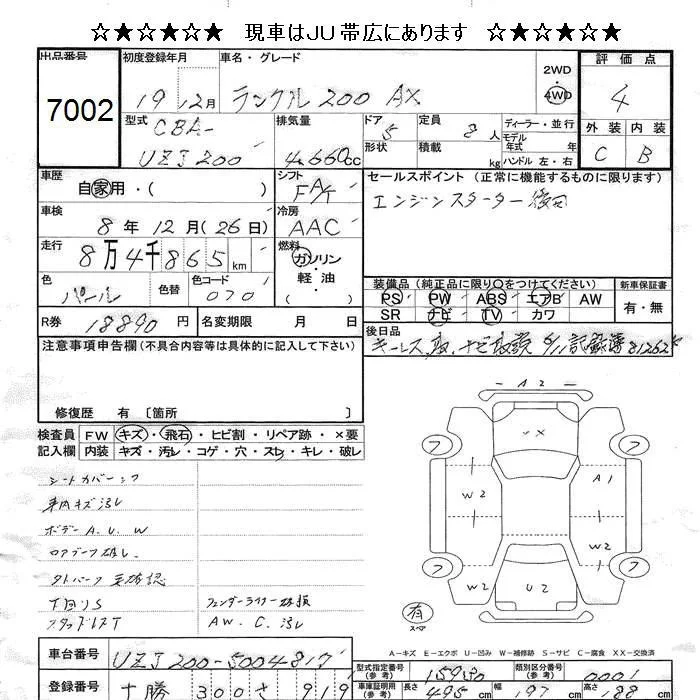 ☆★☆★☆★ 現車はJU帯広にあります ☆★☆★☆★
出品番号 7002
初度登録年月 19 12月
車名・グレード ランクル200 AX
2WD 4WD
評価点 4
外装 C 内装 B
型式 CBA- UZJ200
排気量 4.660cc
ドア 5 形状
定員 8人 積載 kg
ディーラー・並行
モデル年式 年式
ハンドル 左・右
車歴 自家用・( )
シフト FAT
セールスポイント (正常に機能するものに限ります)
エンジンスターター
車検 8年12月(26日)
冷房 AAC
走行 8万4千865km
燃料 ガソリン 軽油 ( )
色 パール 色替 色コード 070
装備品(純正品に限り○をつけてください)
PS PW ABS エアB AW
SR ナビ TV カワ
新車保証書 有・無
R券 18890円 名変期限 月 日
後日品
キーレス 取 ナビ取説 記録簿
注意事項申告欄(不具合内容等は具体的に記入して下さい)
修復歴 有〔箇所 〕
検査員記入欄
FW キズ・飛石・ヒビ割・リペア跡・×要
内装 キズ・汚レ・コゲ・穴・スレ・キレ・破レ
シートカバーシワ
車内キズ汚レ
ボデーA.U.W
ロアブーツ破レ
下回りS
スタッドレスT
フェンダーライナー破損
AW.C.汚レ
A2
UX
フ フ
W2 A1
W2
W2 U2 W2
フ フ
有 スペア
A-キズ E-エクボ U-凹み W-補修跡 S-サビ C-腐食 XX-交換済
車台番号 UZJ200-5004817
型式指定番号(参考) 15980
類別区分番号(参考) 0001
登録番号 十勝 300 さ 919
車庫証明用(参考) 長さ 495cm 幅 197cm 高さ 88cm